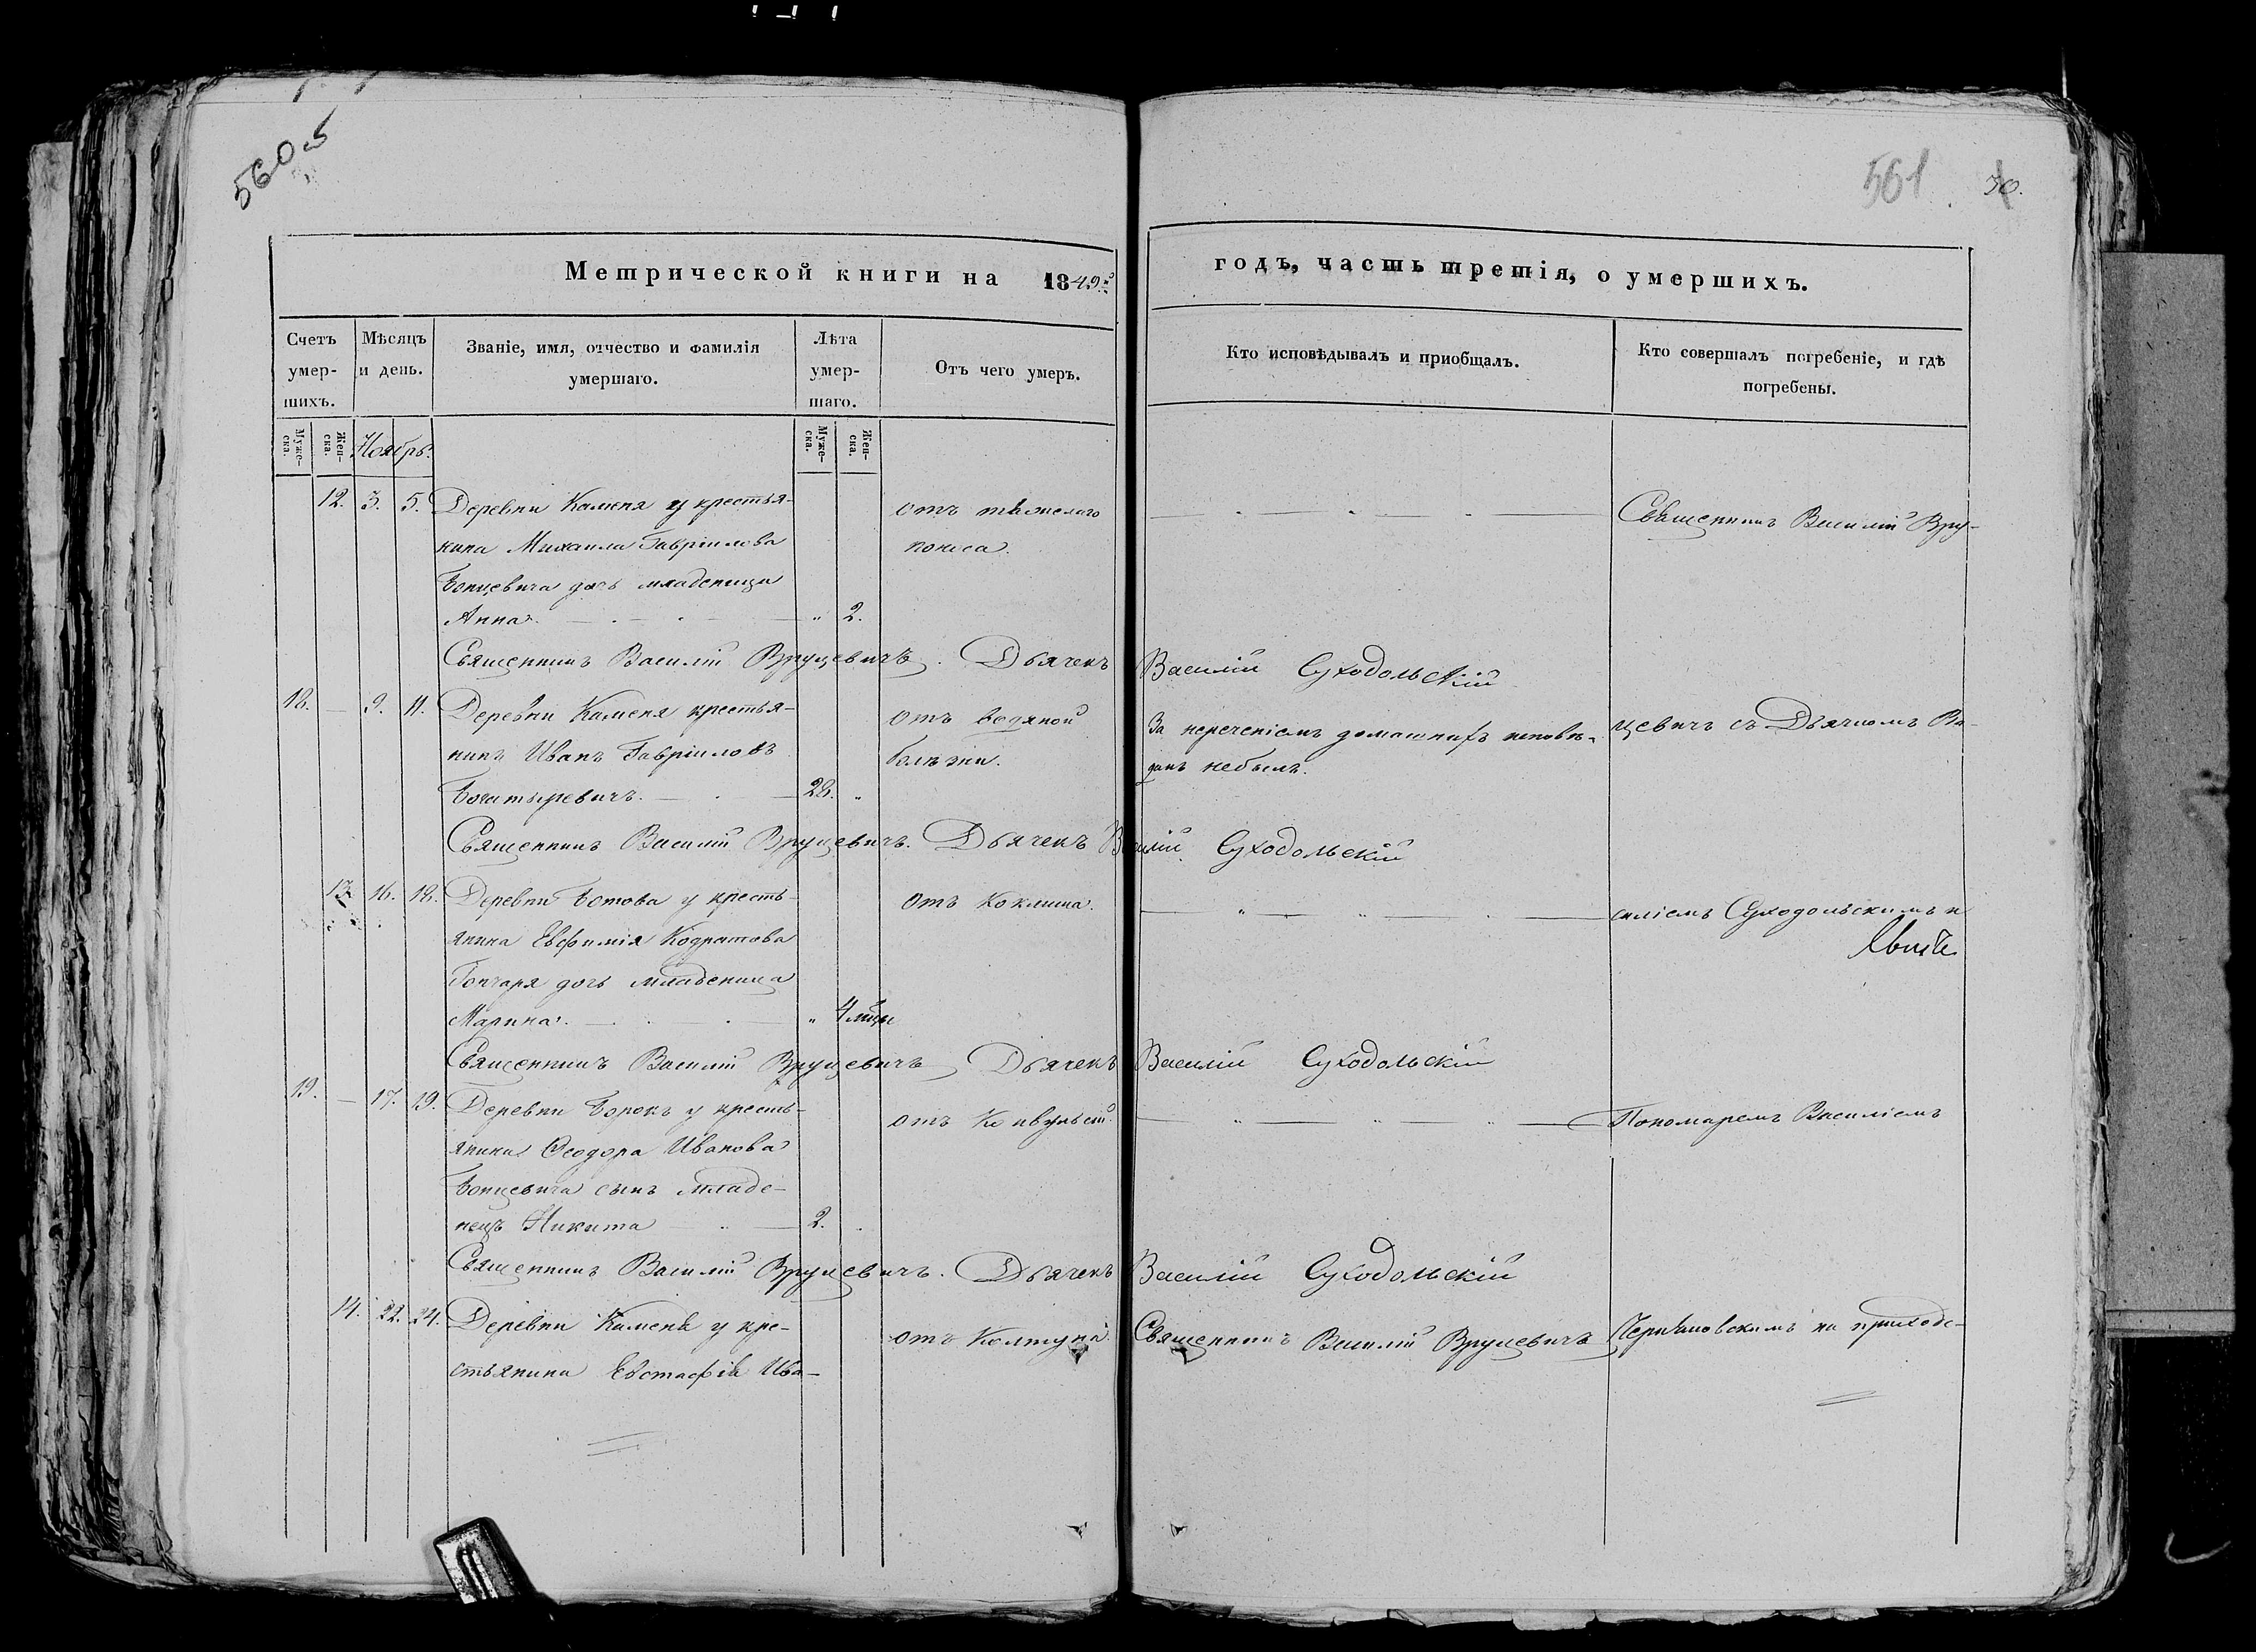 560 об
561
Метрической книги на 1849й
годъ, часть третія, о умершихъ.
Счетъ умер-шихъ.
Мѣсяцъ и день.
Званіе, имя, отчество и фамилія умершаго.
Лѣта умер-шаго.
Отъ чего умеръ.
Кто исповѣдывалъ и пріобщалъ.
Кто совершалъ погребеніе, и гдѣ погребены.
Муже-ска.
Жен-ска.
Ноябрь.
Муже-ска.
Жен-ска.
12. 3. 5. Деревни Каменя у крестья-
нина Михаила Гавріилова
Бонцевича дочь младеница
Анна. 2.
отъ тяжелого
поноса.
Священникъ Василій Вру-
Священникъ Василій Вруцевичъ. Дьячекъ Василій Суходольскій
18. — 9. 11. Деревни Каменя крестья-
нинъ Иванъ Гавріиловъ
Богатыревичъ. 28.
отъ водяной
болѣзни.
За нереченіемъ домашнихъ исповѣ-
данъ небылъ.
цевичъ съ Дьячкомъ Ва-
Священникъ Василій Вруцевичъ. Дьячекъ Василій Суходольскій
13. 16. 18. Деревни Ботова у кресть-
янина Евфимія Кодратова
Гончаря дочь младеница
Марина. 4 мѣц.
отъ коклиша.
силіемъ Суходольскимъ и
Священникъ Василій Вруцевичъ Дьячекъ Василій Суходольскій
19. — 17. 19. Деревни Борокъ у кресть-
янина Ѳеодора Иванова
Бонцевича сынъ младе-
нецъ Никита 2.
отъ Конвульсій
Пономаремъ Василіемъ
Священникъ Василій Вруцевичъ. Дьячекъ Василій Суходольскій
14. 22. 24. Деревни Каменя у кре-
стьянина Евстафія Ива-
отъ Колтуна
Священникъ Василій Вруцевичъ
на приходс-